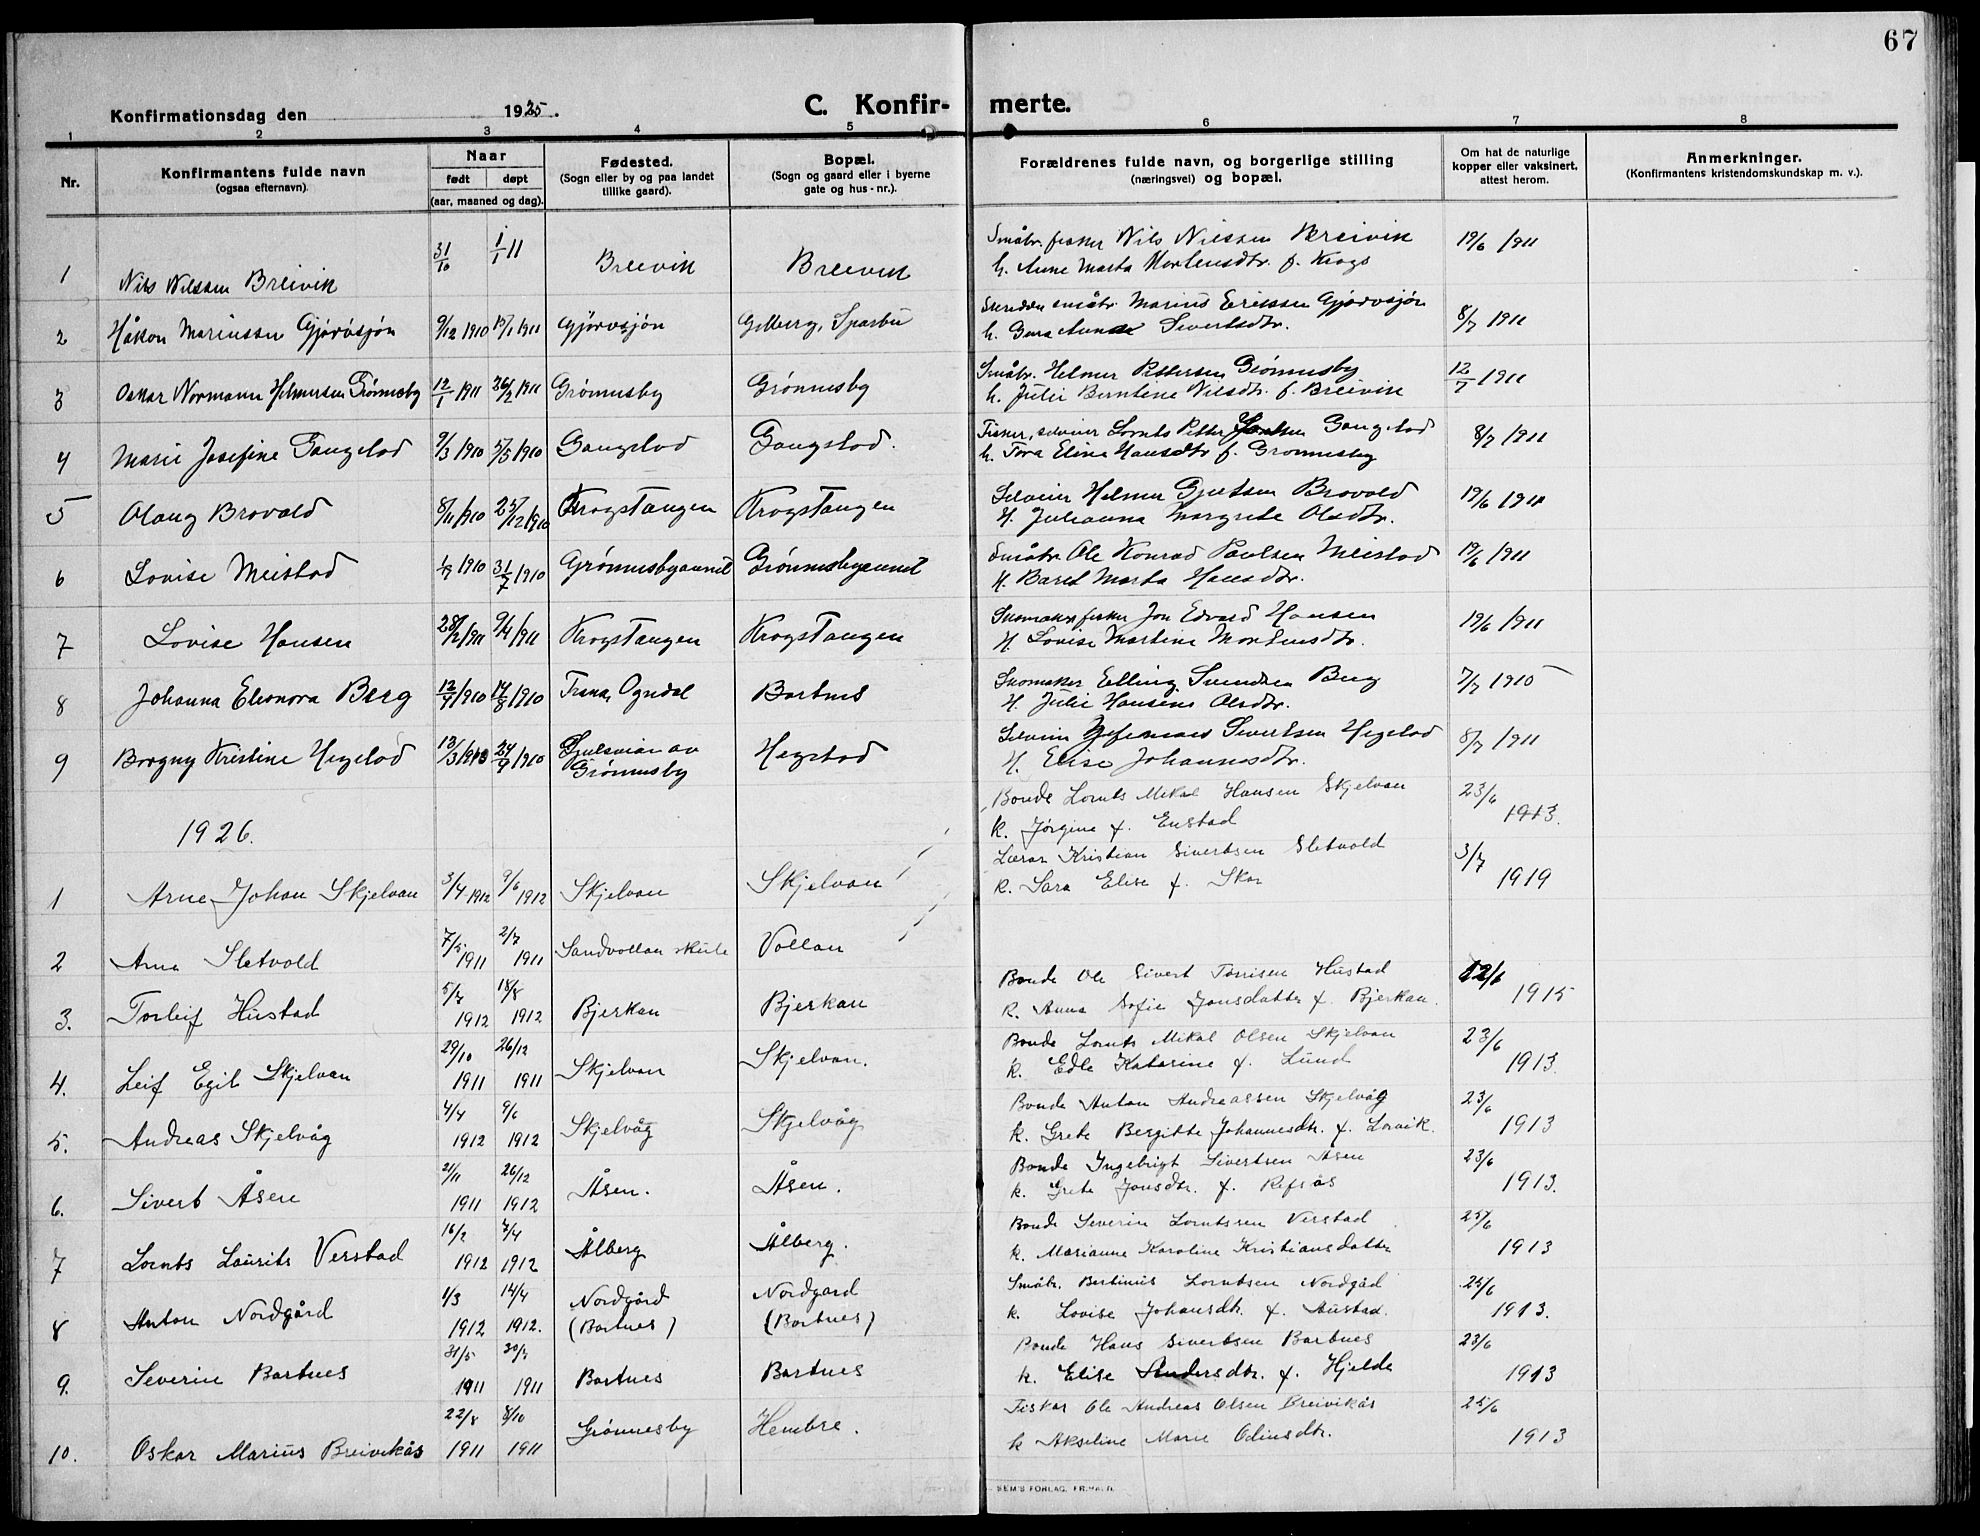 67
Konfirmationsdag den 1925.
C. Konfir- merte.
1 2 3 4 5 6 7 8
Nr.
Konfirmantens fulde navn
(ogsaa efternavn).
Naar
født døpt
(aar, maaned og dag).
Fødested.
(Sogn eller by og paa landet
tillike gaard).
Bopæl.
(Sogn og gaard eller i byerne
gate og hus-nr.).
Forældrenes fulde navn, og borgerlige stilling
(næringsvei) og bopæl.
Om hat de naturlige
kopper eller vaksinert,
attest herom.
Anmerkninger.
(Konfirmantens kristendomskundskap m. v.).
Småbr. fisker Nils Nilssen Breivik 19/6 1911
1 Nils Nilssen Breivik 31/10 1/1 11 Breivik Breivik
h. Anne Marta Mortensdtr. f. Krogs
småbr. Marius Erikssen Gjørvsjøn
2 Håkon Mariussen Gjørvsjøn 9/12 1910 15/1 1911 Gjørvsjøn Gilberg, Sparbu 8/7 1911
h. Gura Sivertsdtr.
Småbr. Helmer Pettersen Grønnesby
3 Oskar Normann Helmersen Grønnesby 12/1 1911 26/2 1911 Grønnesby Grønnesby 12/7 1911
h. Julie Berntine Nilsdtr. f. Breivik
Fisker, selveier Lornts Petter Gangstad
4 Marie Josefine Gangstad 9/3 1910 5/5 1910 Gangstad Gangstad. 8/7 1911
h. Tora Eline Hansdtr f. Grønnesby
Selveier Helmer Brovold
5 Olaug Brovold 8/11 1910 25/12 1910 Krogstangen Krogstangen 19/6 1911
H. Julianna Margrete Olsdtr.
Småbr. Ole Konrad Paulsen Meistad
6 Lovise Meistad 1/7 1910 31/7 1910 Grønnesbyaunet Grønnesbyaunet 19/6 1911
H. Beret Marta Hansdtr.
Skomaker fisker Jon Edvard Hansen
7 Lovise Hansen 28/2 1911 9/4 1911 Krogstangen Krogstangen 19/6 1911
H. Lovise Martine Mortensdtr.
Skomaker Elling Svendsen Berg
8 Johanna Eleonora Berg 12/4 1910 14/8 1910 Trana, Ogndal Bartnes 7/7 1910
H. Julie Hansine Olsdtr.
Selveier Sivertsen Hegstad
9 Borgny Kristine Hegstad 13/3 1910 24/4 1910 av Grønnesby Hegstad 8/7 1911
H. Elise Johannesdtr.
1926.
Bonde Lornts Mikal Hansen Skjelvan 23/6 1913.
k. Jørgine f. Enstad
1 Arne Johan Skjelvan 3/4 1912 9/6 1912 Skjelvan Skjelvan
Lærar Kristian Sivertsen Sletvold 3/7 1919
k. Sara Elise f. Skar
2 Arne Sletvold 7/5 1911 2/7 1911 Sandvollan skule Vollan
Bonde Ole Sivert Torrisen Hustad 12/6 1915
3. Torleif Hustad 5/7 1912 18/8 1912 Bjerkan Bjerkan
k. Anna Sofie Jonsdatter f. Bjerkan.
Bonde Lornts Mikal Olsen Skjelvan 23/6 1913
4. Leif Egil Skjelvan 29/10 1911 26/12 1911 Skjelvan Skjelvan.
k. Edle Katarine f. Lund
Bonde Anton Andreassen Skjelvåg 23/6 1913
5. Andreas Skjelvåg 4/4 1912 9/6 1912 Skjelvåg Skjelvåg
k. Grete Bergitte Johannesdtr. f. Lorvik.
Bonde Ingebrigt Sivertsen Åsen 23/6 1913.
6. Sivert Åsen 21/11 1911 26/12 1912 Åsen. Åsen.
k. Grete Jonsdtr. f. Refsås
Bonde Severin Lorntssen Verstad 25/6 1913
7 Lornts Laurits Verstad 16/2 1912 7/4 1912 Ålberg Ålberg.
k. Marianne Karoline Kristiansdatter
Småbr. Bertinus Lorntsen Nordgåd 25/6 1913.
8 Anton Nordgård 1/3 1912 14/4 1912. Nordgård (Bartnes) Nordgard (Bartnes)
k. Lovise Johansdtr. f. Austad.
Bonde Hans Sivertsen Bartnes 23/6 1913
9. Severin Bartnes 31/5 1911 30/7 1911 Bartnes Bartnes
k. Elise Andersdtr. f. Hjelde
Fiskar Ole Andreas Olsen Breivikås 25/6 1913
10. Oskar Marius Breivikås 22/8 1911 8/10 1911 Grønnesby Hembre.
k Akseline Marie Odinsdtr.
SEM'S FORLAG, FR.HALD.